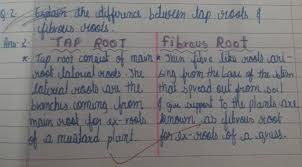 Q.2. Explain the difference between tap roots &
fibrous roots.
Ans: 2. TAP ROOT Fibrous Root
* Tap root consist of main * Thin fibre like roots ari-
root & lateral roots. The sing from the base of the stem
lateral roots are the that spread out from soil
branches coming from & give support to the plants are
main root for ex- roots known as fibrous root
of a mustard plant. for ex- roots of a grass.